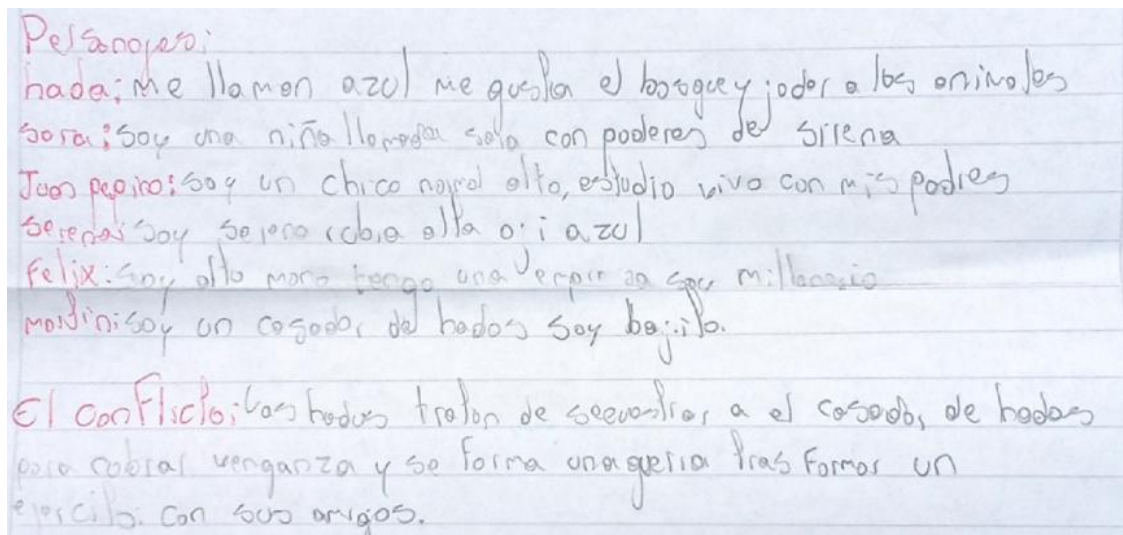 Personajes:
hada: Me llaman azul me gusta el bosque y jodar a los animales
sora: soy una niña llamada sola con poderes de sirena
Juan pepino: soy un chico normal alto, estudio vivo con mis padres
serena: soy serena rubia alta oji azul
Felix: soy alto moro tengo una soy millonario
mardini: soy un casador de hadas soy bajito.
El conflicto: las hadas tratan de secuestrar a el casador de hadas
para cobrar venganza y se forma una guerra tras formar un
ejercito con sus amigos.